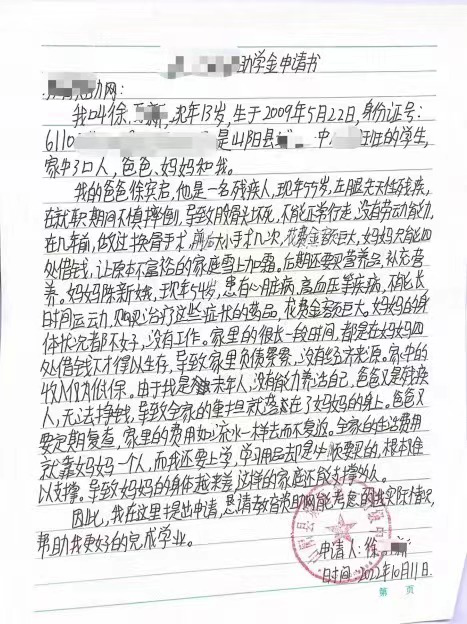 助学金申请书
助网：
我叫徐新，现年13岁，生于2009年5月22日，身份证号：
6110是山阳县中班的学生，
家中3口人，爸爸、妈妈和我。
我的爸爸徐实启，他是一名残疾人，现年55岁，左腿先天性残疾，
在就职期间不慎摔倒，导致股骨头坏死，不能正常行走，没有劳动能力，
在几年前，做过换骨手术，前后大小手术几次，花费金额巨大，妈妈只能四
处借钱，让原本不富裕的家庭雪上加霜。后期还要买营养品，补充营
养。妈妈陈新娥，现年54岁，患有心脏病，高血压等疾病，不能长
时间运动，购买治疗这些症状的药品，花费金额巨大。妈妈的身
体状况都不太好，没有工作。家里的很长一段时间，都是在妈妈四
处借钱才得以生存，导致家里负债累累，没有经济来源。家中的
收入仅为低保。由于我是未年人，没有能力养活自己，爸爸又是残疾
人，无法挣钱，导致全家的重担就落在了妈妈的身上。爸爸又
要定期复查，家里的费用如流水一样去而不复返。全家的生活费用
就靠妈妈一个人，而我还要上学，学习用品却是必须要买的，根本难
以支撑。导致妈妈的身体越来越差，这样的家庭还能支撑多久。
因此，我在这里提出申请，恳请教育资助网能考虑我的实际情况，
帮助我更好的完成学业。
申请人：徐新
时间：2022年10月11日
第 页